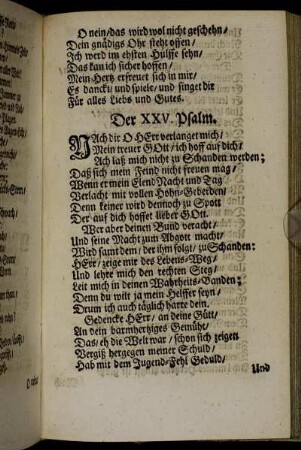 O nein/ das wird wol nicht geschehn/
Dein gnädigs Ohr steht offen/
Ich werd im ehsten Hülffe sehn/
Das kan ich sicher hoffen/
Mein Hertz erfreuet sich in mir/
Es danckt und spielt/ und singet dir
Für alles Liebs und Gutes.
Der XXV. Psalm.
NAch dir O HErr verlanget mich/
Mein treuer GOtt ich hoff auf dich/
Ach laß mich nicht zu Schanden werden;
Daß sich mein Feind nicht freuen mag/
Wenn er mein Elend Nacht und Tag
Verlacht mit vollen Hohn-Geberden;
Denn keiner wird dennoch zu Spott
Der auf dich hoffet lieber GOtt.
Wer aber deinen Bund veracht/
Und seine Macht zum Abgott macht/
Wird samt dem/ der ihm folgt/ zu Schanden:
HErr/ zeige mir des Lebens-Weg/
Und lehre mich den rechten Steg/
Leit mich in deinen Wahrheits-Banden;
Denn du wilt ja mein Helffer seyn/
Drum ich auch täglich harre dein.
Gedencke HErr/ an deine Gütt/
An dein barmhertziges Gemüht/
Das/ eh die Welt war/ schon sich zeiget
Vergiß hergegen meiner Schuld/
Hab mit dem Jugend-Fehl Geduld/
Und